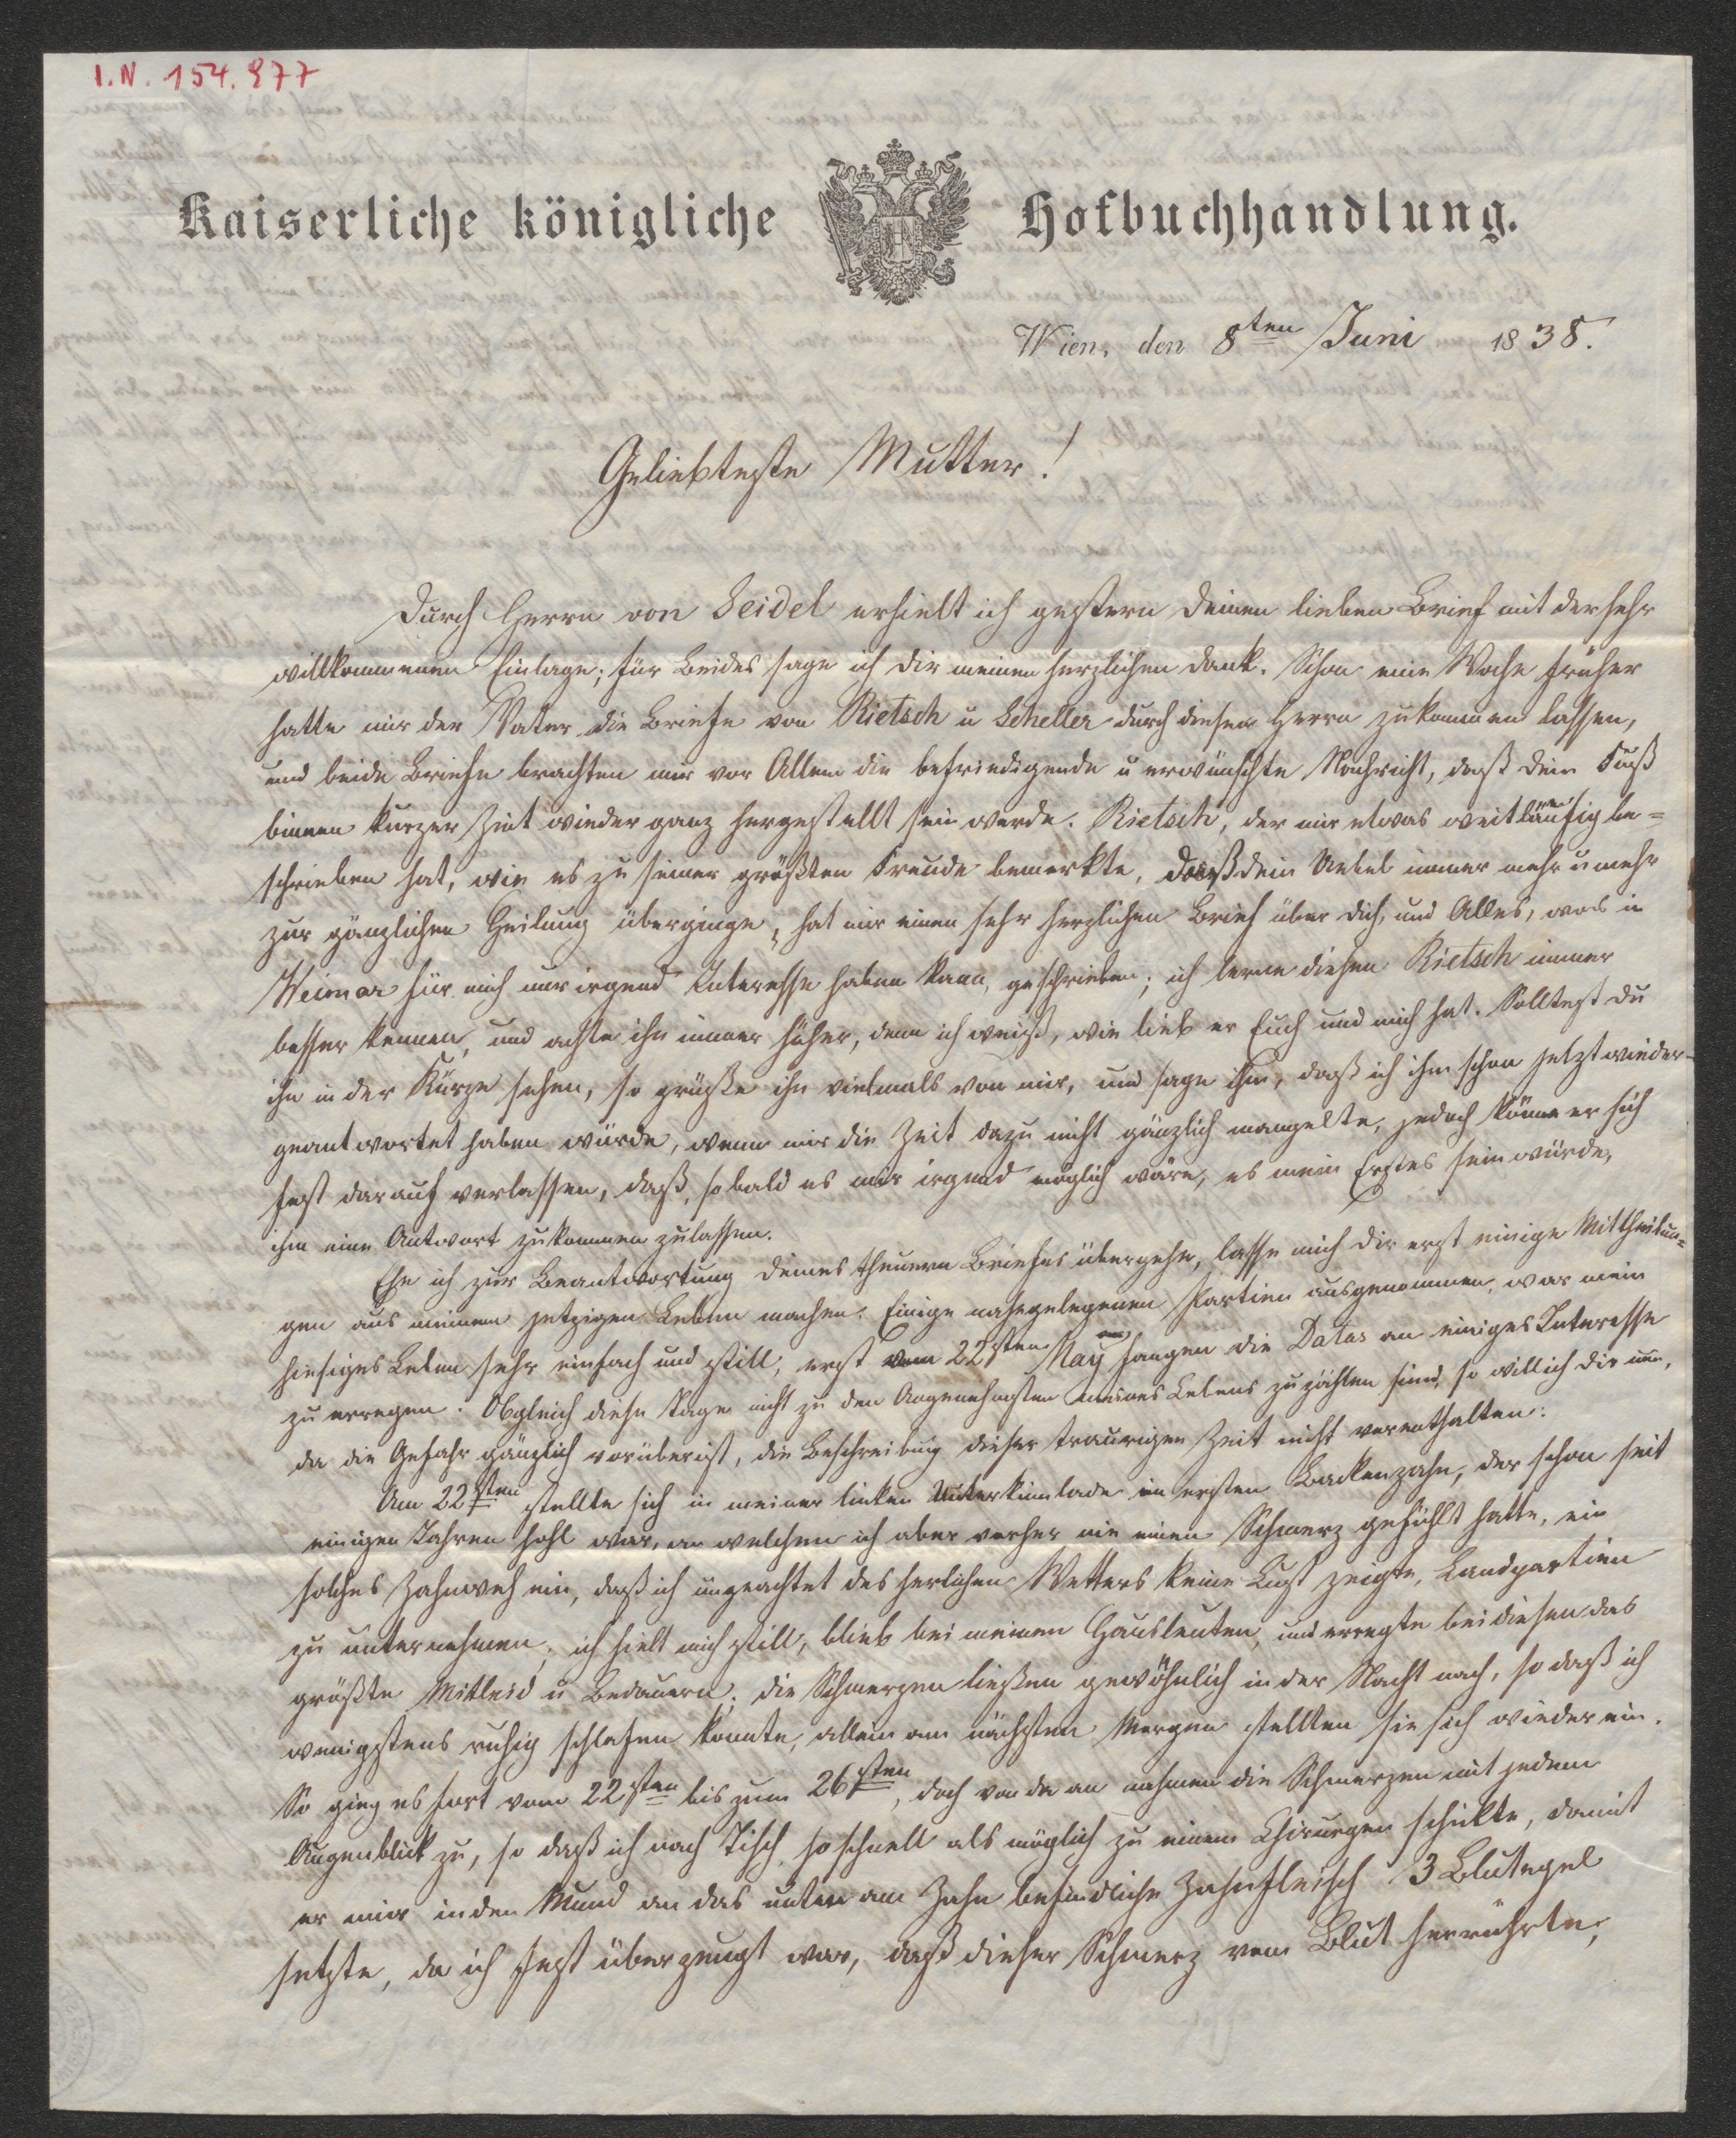 I.N. 154.977
Kaiserliche königliche Hofbuchhandlung.
Wien, den 8ten Juni 1838.
Geliebteste Mutter!
Durch Herrn von Seidel erhielt ich gestern Deinen lieben Brief mit der sehr
willkommenen Einlage; für Beides sage ich Dir meinen herzlichen Dank. Schon eine Woche früher
hatte mir der Vater die Briefe von Rietsch u Scheller durch diesen Herrn zukommen lassen,
und beide Briefe brachten mir vor Allem die befriedigende u erwünschte Nachricht, daß Dein Fuß
binnen kurzer Zeit wieder ganz hergestellt sein werde. Rietsch, der mir etwas weitläufig be=
schrieben hat, wie es zu seiner größten Freude bemerkte, daß Dein Uebel immer mehr u mehr
zur gänzlichen Heilung überginge, hat mir einen sehr herzlichen Brief über Dich, und Alles, was in
Weimar für mich nur irgend Interesse haben kann, geschrieben; ich lerne diesen Rietsch immer
besser kennen, und achte ihn immer höher, denn ich weiß, wie lieb er Euch und mich hat. Solltest Du
ihn in der Kürze sehen, so grüße ihn vielmals von mir, und sage ihm, daß ich ihm schon jetzt wieder-
geantwortet haben würde, wenn mir die Zeit dazu nicht gänzlich mangelte, jedoch könne er sich
fest darauf verlassen, daß, sobald es mir irgend möglich wäre, es mein Erstes sein würde,
ihm eine Antwort zukommen zulassen.
Ehe ich zur Beantwortung Deines theuern Briefes übergehe, lasse mich Dir erst einige Mittheilun=
gen aus meinem jetzigen Leben machen. Einige nahegelegenen Partien ausgenommen, war mein
hiesiges Leben sehr einfach und still; erst vom 22sten May an fangen die Datas an einiges Interesse
zu erregen. Obgleich diese Tage nicht zu den Angenehmsten meines Lebens zu zählen sind, so will ich Dir nun,
da die Gefahr gänzlich vorüber ist, die Beschreibung dieser traurigen Zeit nicht vorenthalten:
Am 22sten stellte sich in meiner linken Unterkinnlade im ersten Backenzahn, der schon seit
einigen Jahren hohl war, an welchem ich aber vorher nie einen Schmerz gefühlt hatte, ein
solches Zahnweh ein, daß ich ungeachtet des herlichen Wetters keine Lust zeigte, Landpartien
zu unternehmen; ich hielt mich still, blieb bei meinen Hausleuten, und erregte bei diesen das
größte Mitleid u Bedauern; die Schmerzen ließen gewöhnlich in der Nacht nach, so daß ich
wenigstens ruhig schlafen konnte, allein am nächsten Morgen stellten sie sich wieder ein.
So ging es fort vom 22sten bis zum 26sten, doch von da an nahmen die Schmerzen mit jedem
Augenblick zu, so daß ich nach Tisch so schnell als möglich zu einem Chirurgen schickte, damit
er mir in den Mund an das unten am Zahn befindliche Zahnfleisch 3 Blutegel
setzte, da ich fest überzeugt war, daß dieser Schmerz vom Blut herrührte;